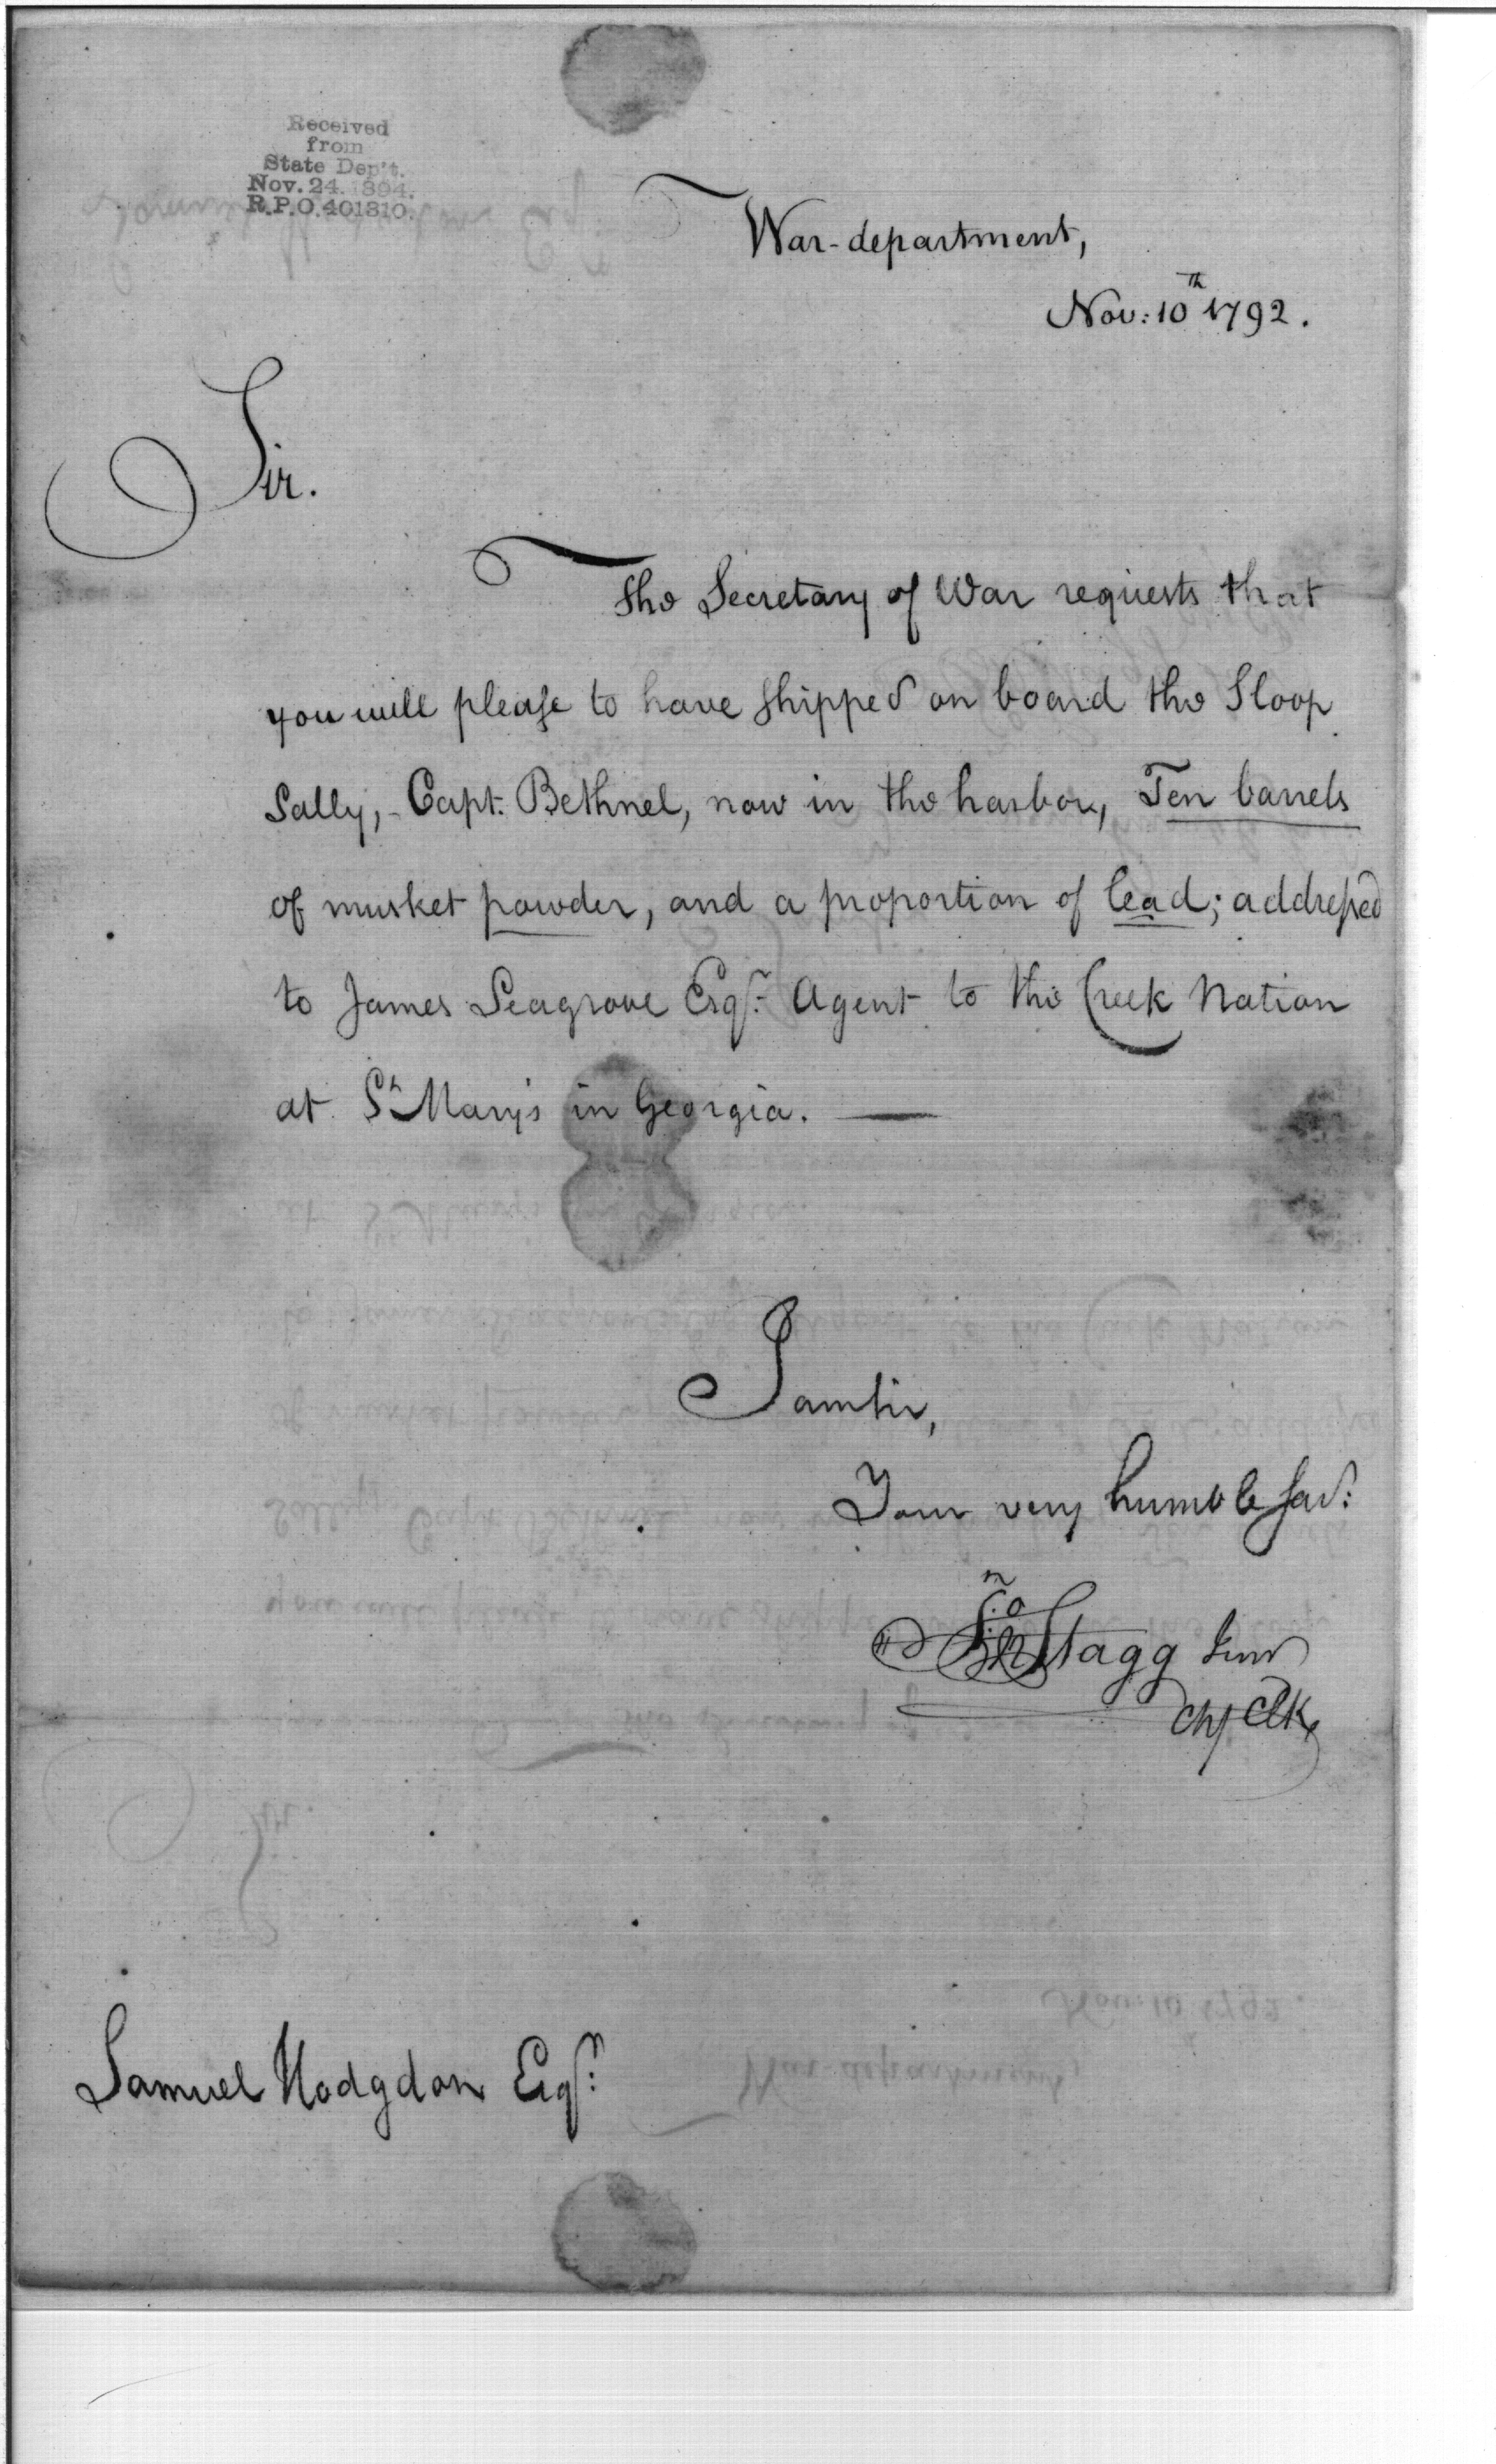 Received
from
State Dep't.
Nov. 24. 1894.
R.P.O. 401810.
War-department,
Nov: 10th 1792.
Sir.
The Secretary of War requests that
you will please to have shipped on board the Sloop
Sally, - Capt. Bethnel, now in the harbor, Ten barrels
of musket powder, and a proportion of lead; addressed
to James Seagrove Esqr. Agent to the Creek Nation
at St Mary's in Georgia. —
I am sir,
Your very humble
Jno Stagg Junr
Chf Clk
Samuel Hodgdon Esqr.